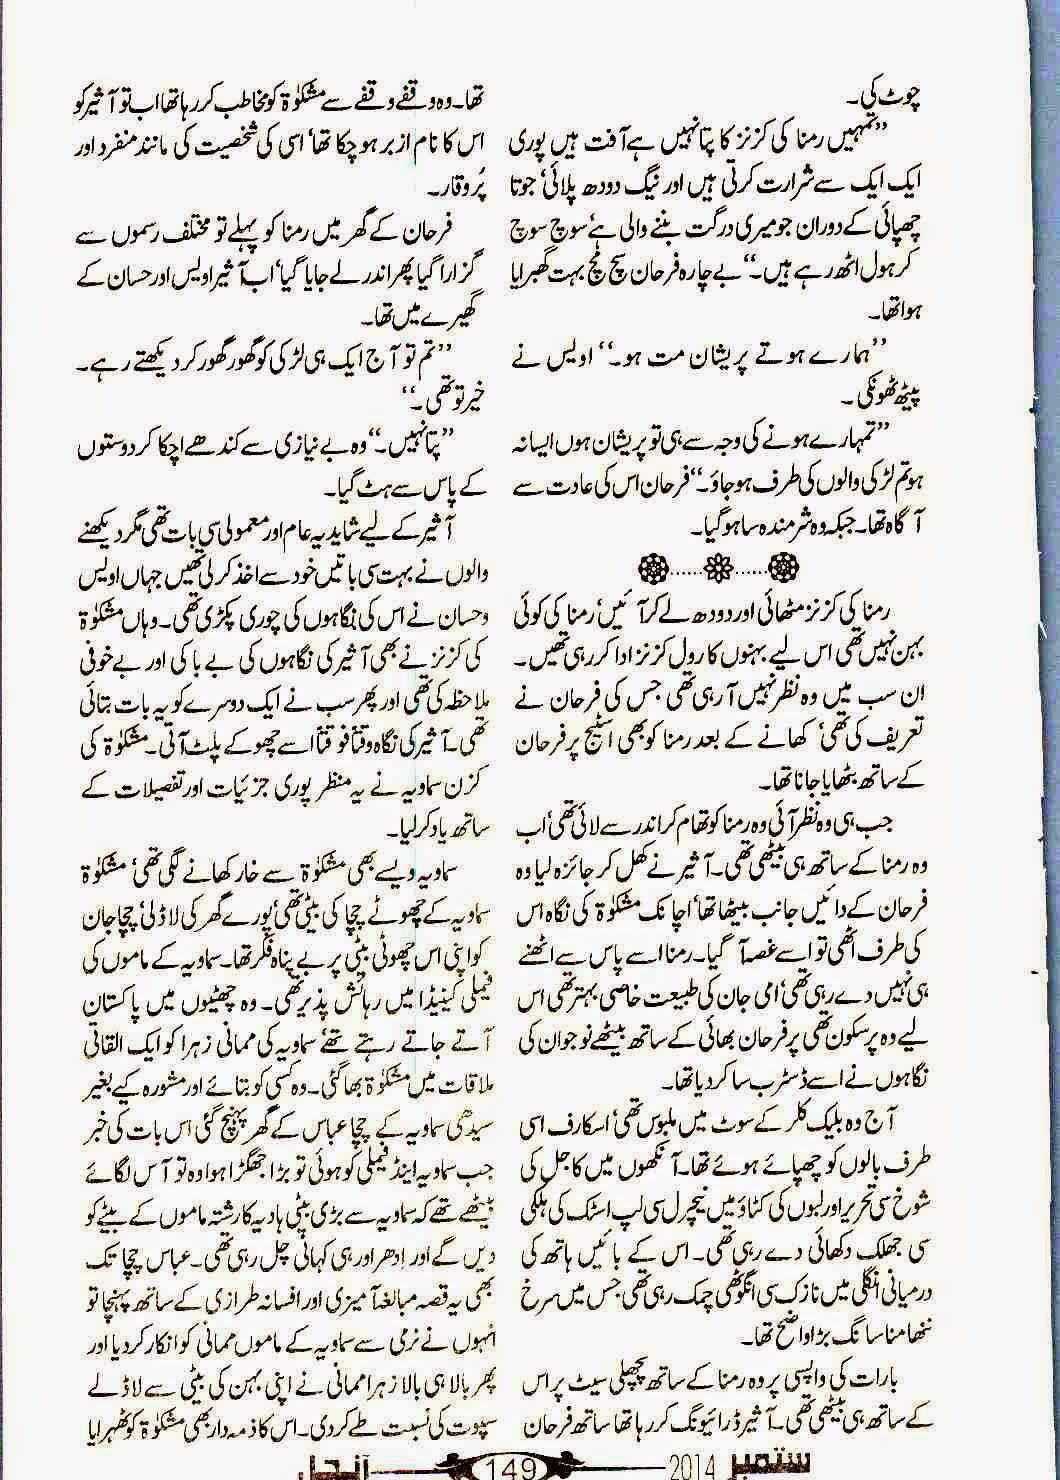 چوٹ کی۔
”تمہیں رمنا کی کزنز کا پتا نہیں ہے آفت ہیں پوری
ایک ایک سے شرارت کرتی ہیں اور نیگ دودھ پلائی‘ جوتا
چھپائی کے دوران جو میری درگت بننے والی ہے‘ سوچ سوچ
کر ہول اٹھ رہے ہیں۔“ بے چارہ فرحان سچ مچ بہت گھبرایا
ہوا تھا۔
”ہمارے ہوتے پریشان مت ہو۔“ اویس نے
پیٹھ ٹھونکی۔
”تمہارے ہونے کی وجہ سے ہی تو پریشان ہوں ایسا نہ
ہو تم لڑکی والوں کی طرف ہو جاؤ۔“ فرحان اس کی عادت سے
آگاہ تھا۔ جبکہ وہ شرمندہ سا ہو گیا۔
رمنا کی کزنز مٹھائی اور دودھ لے کر آئیں‘ رمنا کی کوئی
بہن نہیں تھی اس لیے بہنوں کا رول کزنز ادا کر رہی تھیں۔
ان سب میں وہ نظر نہیں آ رہی تھی جس کی فرحان نے
تعریف کی تھی‘ کھانے کے بعد رمنا کو بھی اسٹیج پر فرحان
کے ساتھ بٹھایا جانا تھا۔
جب ہی وہ نظر آئی وہ رمنا کو تھام کر اندر سے لائی تھی‘ اب
وہ رمنا کے ساتھ ہی بیٹھی تھی۔ آثیر نے کھل کر جائزہ لیا وہ
فرحان کے دائیں جانب بیٹھا تھا‘ اچانک مشکوٰۃ کی نگاہ اس
کی طرف اٹھی تو اسے غصہ آ گیا۔ رمنا اسے پاس سے اٹھنے
ہی نہیں دے رہی تھی‘ امی جان کی طبیعت خاصی بہتر تھی اس
لیے وہ پرسکون تھی پر فرحان بھائی کے ساتھ بیٹھے نوجوان کی
نگاہوں نے اسے ڈسٹرب سا کر دیا تھا۔
آج وہ بلیک کلر کے سوٹ میں ملبوس تھی‘ اسکارف اسی
طرف بالوں کو چھپائے ہوئے تھا۔ آنکھوں میں کاجل کی
شوخ سی تحریر اور لبوں کی کٹاؤ میں نیچرل سی لپ اسٹک کی ہلکی
سی جھلک دکھائی دے رہی تھی۔ اس کے بائیں ہاتھ کی
درمیانی انگلی میں نازک سی انگوٹھی چمک رہی تھی جس میں سرخ
ننھا منا سا نگ بڑا واضح تھا۔
بارات کی واپسی پر وہ رمنا کے ساتھ پچھلی سیٹ پر اس
کے ساتھ ہی بیٹھی تھی۔ آثیر ڈرائیونگ کر رہا تھا ساتھ فرحان
تھا۔ وہ وقفے وقفے سے مشکوٰۃ کو مخاطب کر رہا تھا اب تو آثیر کو
اس کا نام ازبر ہو چکا تھا‘ اسی کی شخصیت کی مانند منفرد اور
پُروقار۔
فرحان کے گھر میں رمنا کو پہلے تو مختلف رسموں سے
گزارا گیا پھر اندر لے جایا گیا‘ اب آثیر اویس اور حسان کے
گھیرے میں تھا۔
”تم تو آج ایک ہی لڑکی کو گھور گھور کر دیکھتے رہے۔
خیر تو تھی۔“
”پتا نہیں۔“ وہ بے نیازی سے کندھے اچکا کر دوستوں
کے پاس سے ہٹ گیا۔
آثیر کے لیے شاید یہ عام اور معمولی سی بات تھی مگر دیکھنے
والوں نے بہت سی باتیں خود سے اخذ کر لی تھیں جہاں اویس
و حسان نے اس کی نگاہوں کی چوری پکڑی تھی۔ وہاں مشکوٰۃ
کی کزنز نے بھی آثیر کی نگاہوں کی بے باکی اور بے خوفی
ملاحظہ کی تھی اور پھر سب نے ایک دوسرے کو یہ بات بتائی
تھی۔ آثیر کی نگاہ وقتاً فوقتاً اسے چھو کے پلٹ آتی۔ مشکوٰۃ کی
کزن سماویہ نے یہ منظر پوری جزئیات اور تفصیلات کے
ساتھ یاد کر لیا۔
سماویہ ویسے بھی مشکوٰۃ سے خار کھانے لگی تھی‘ مشکوٰۃ
سماویہ کے چھوٹے چچا کی بیٹی تھی‘ پورے گھر کی لاڈلی‘ چچا جان
کو اپنی اس چھوٹی بیٹی پر بے پناہ فکر تھا۔ سماویہ کے ماموں کی
فیملی کینیڈا میں رہائش پذیر تھی۔ وہ چھٹیوں میں پاکستان
آتے جاتے رہتے تھے‘ سماویہ کی ممانی زہرا کو ایک اتفاقی
ملاقات میں مشکوٰۃ بھا گئی۔ وہ کسی کو بتائے اور مشورہ کیے بغیر
سیدھی سماویہ کے چچا عباس کے گھر پہنچ گئی اس بات کی خبر
جب سماویہ اینڈ فیملی کو ہوئی تو بڑا جھگڑا ہوا وہ تو آس لگائے
بیٹھے تھے کہ سماویہ سے بڑی بیٹی ہادیہ کا رشتہ ماموں کے بیٹے کو
دیں گے اور ادھر اور ہی کہانی چل رہی تھی۔ عباس چچا تک
بھی یہ قصہ مبالغہ آمیزی اور افسانہ طرازی کے ساتھ پہنچا تو
انہوں نے نرمی سے سماویہ کے ماموں ممانی کو انکار کر دیا اور
پھر بالا ہی بالا زہرا ممانی نے اپنی بہن کی بیٹی سے لاڈلے
سپوت کی نسبت طے کر دی۔ اس کا ذمہ دار بھی مشکوٰۃ کو ٹھہرایا
ستمبر 2014 149 آنچل